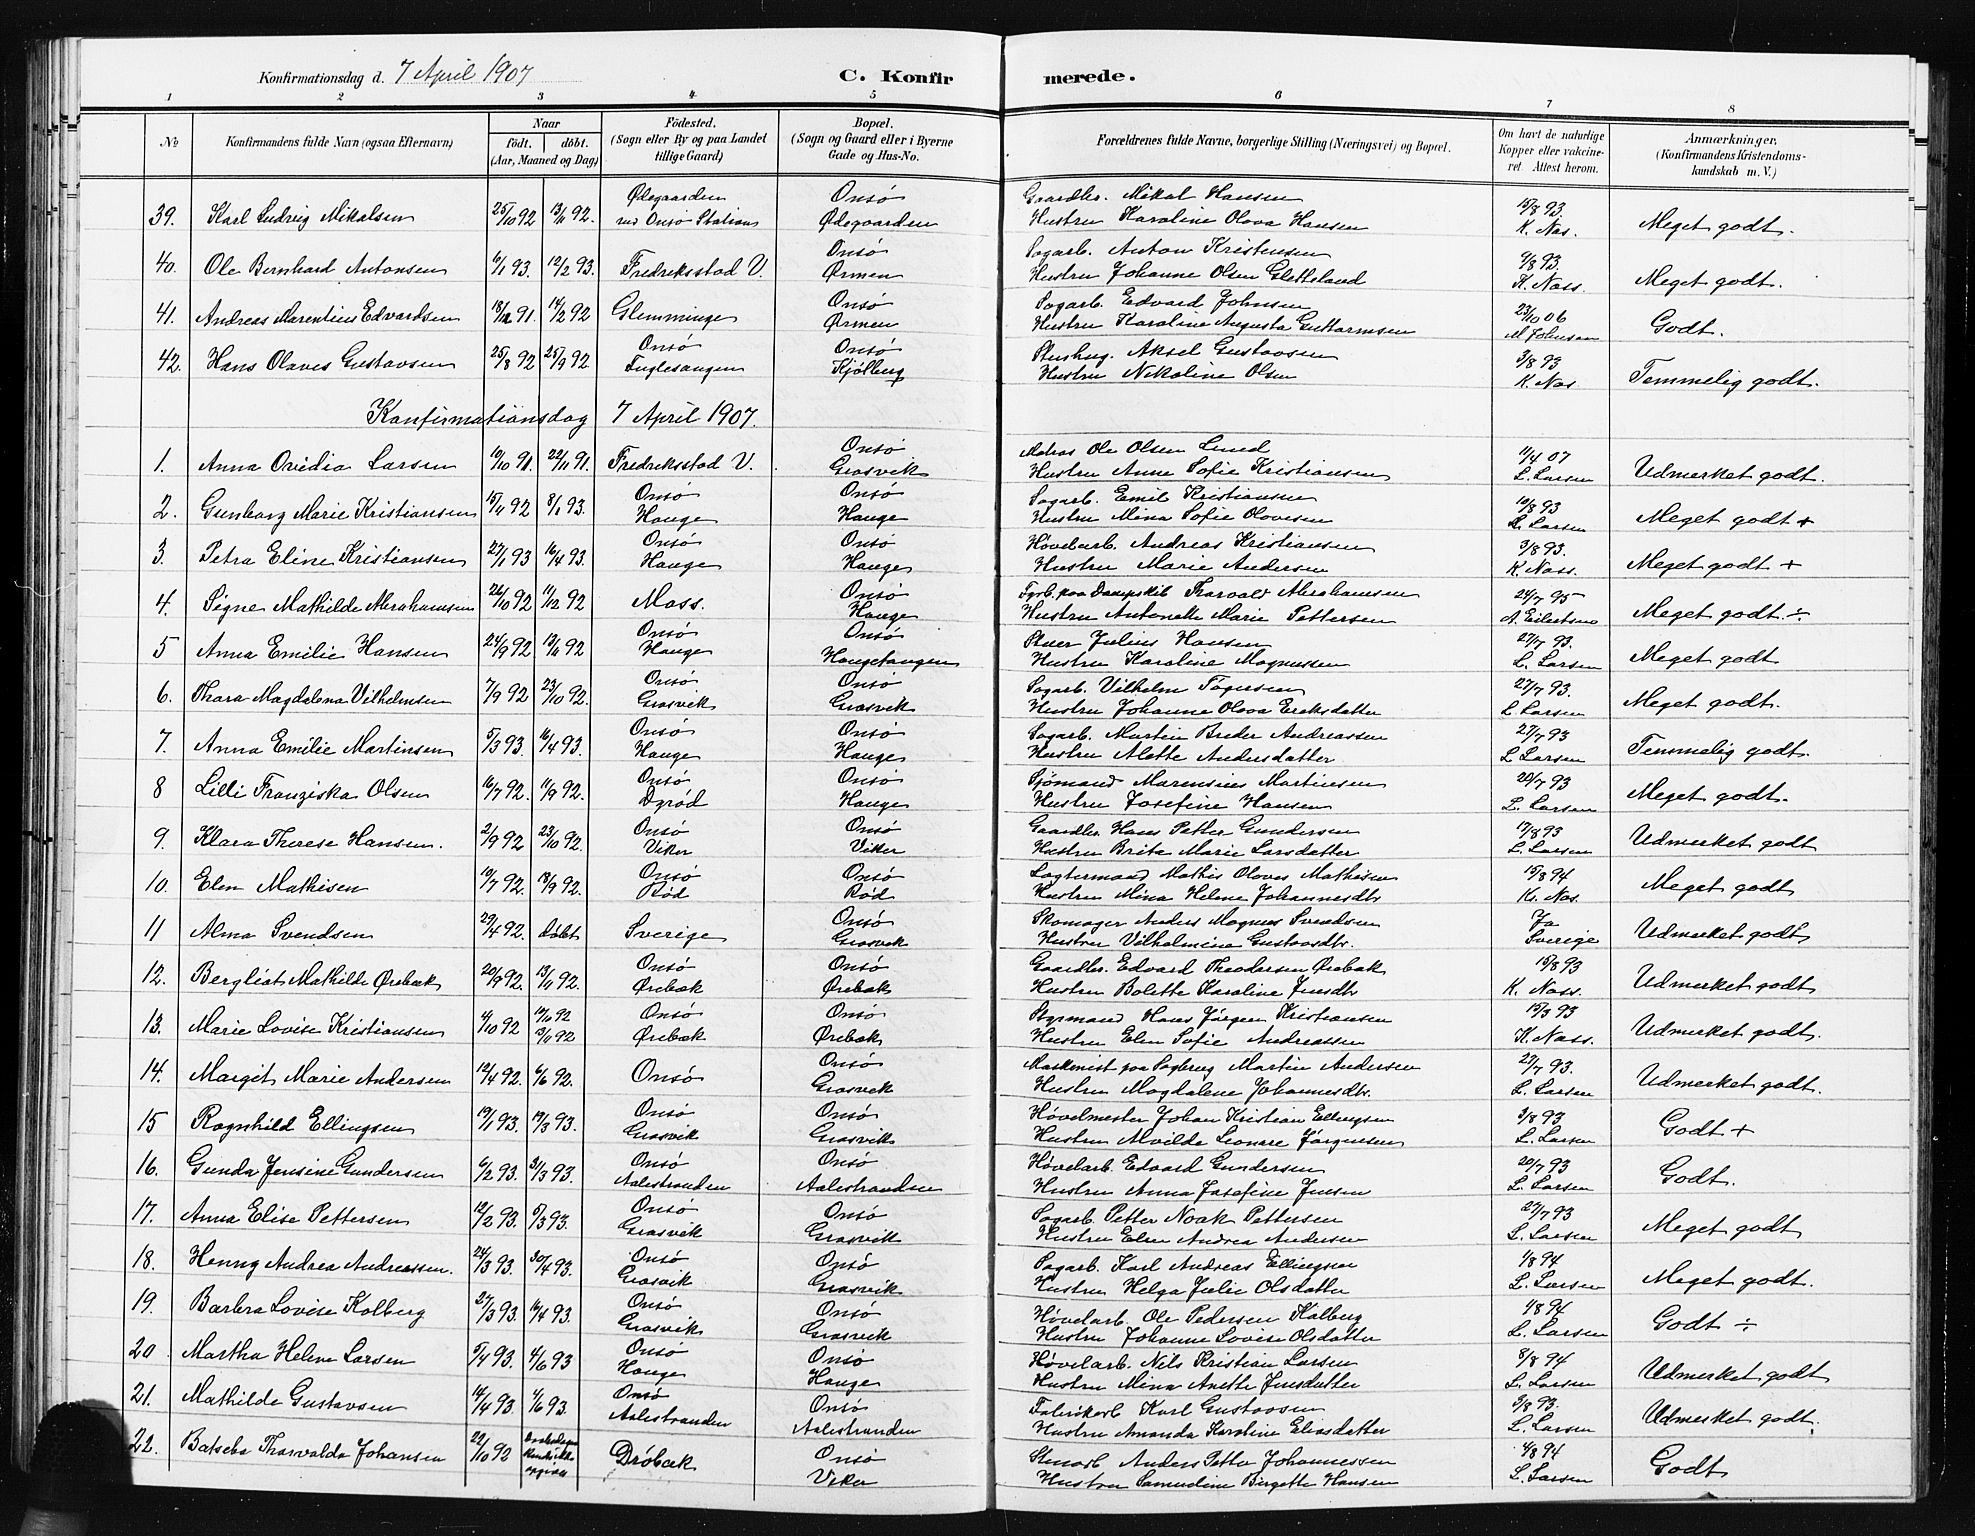 Konfirmationsdag d. 7 April 1907
C. Konfirmerede.
1 2 3 4 5 6 7 8
No
Konfirmandens fulde Navn (ogsaa Efternavn)
Naar
født. døbt.
(Aar, Maaned og Dag)
Fødested.
(Sogn eller By og paa Landet
tillige Gaard)
Bopæl.
(Sogn og Gaard eller i Byerne
Gade og Hus-No.
Forældrenes fulde Navne, borgerlige Stilling (Næringsvei) og Bopæl.
Om havt de naturlige
Kopper eller vakcine-
ret. Attest herom.
Anmærkninger,
(Konfirmandens Kristendoms-
kundskab m. V.)
39. Karl Ludvig Mikalsen 25/10 92 13/11 92. Ødegaarden ved Onsø Station Onsø Ødegaarden Gaardbr. Mikal Hansen Hustru Karoline Olava Hansen 15/8 93. K. Nas. Meget godt.
40. Ole Bernhard Antonsen 6/1 93. 12/2 93. Fredriksstad V. Onsø Ørmen Sagarb. Anton Kristensen Hustru Johanne Olsen Sletteland 9/8 93. K. Nass. Meget godt.
41. Andreas Marentius Edvardsen 18/12 91. 14/2 92 Glemminge Onsø Ørmen Sagarb. Edvard Johnsen Hustru Karoline Augusta Guttormsen 23/10 06 M Johnsen Godt.
42. Hans Olaves Gustavsen 25/8 92 25/9 92. Onsø Fuglesangen Onsø Kjølberg Stenhug. Aksel Gustavsen Hustru Nikoline Olsen 3/8 93 K. Nas. Temmelig godt.
Konfirmationsdag 7 April 1907.
1. Anna Ovidia Larsen 10/10 91. 22/11 91. Fredriksstad V. Onsø Græsvik Matros Ole Olsen Lund Hustru Anne Sofie Kristiansen 11/4 07 L. Larsen Udmerket godt.
2. Gunborg Marie Kristiansen 15/11 92 8/1 93. Onsø Hauge Onsø Hauge Sagarb. Emil Kristiansen Hustru Mina Sofie Olovesen 10/8 93 L. Larsen Meget godt +
3. Petra Eline Kristiansen 27/1 93 16/4 93. Onsø Hauge Onsø Hauge Høvelarb. Andreas Kristiansen Hustru Marie Andersen 3/8 93. K. Nass. Meget godt +
4. Signe Mathilde Abrahamsen 26/10 92 11/12 92 Moss. Onsø Hauge Fyrb. paa Dampskib Tharvald Abrahamsen Hustru Antonette Marie Pettersen 24/7 95 A. Eilertsen Meget godt ÷
5 Anna Emilie Hansen 24/9 92 13/11 92 Onsø Hauge Onsø Haugetangen Stuer Julius Hansen Hustru Karoline Magnussen 27/7 93. L. Larsen Meget godt
6. Thora Magdalena Vilhelmsen 7/9 92 23/10 92. Onsø Græsvik Onsø Græsvik Sagarb. Vilhelm Tøgersen Hustru Johanne Olava Eriksdatter 27/7 93. L Larsen Meget godt.
7. Anna Emilie Martinsen 5/3 93. 16/4 93. Onsø Hauge Onsø Hauge Sagarb. Martin Breder Andreassen Hustru Alette Andersdatter 27/7 93 L Larsen Temmelig godt.
8 Lilli Franziska Olsen 16/7 92. 11/9 92. Onsø Dyrød Onsø Hauge Sjømand Marensius Martinsen Hustru Josefine Hansen 20/7 93 L. Larsen Meget godt.
9. Klara Therese Hansen. 2/9 92 23/10 92. Onsø Viker Onsø Viker Gaardbr. Hans Petter Gundersen Hustru Brita Marie Larsdatter 17/8 93 L. Larsen Udmerket godt
10. Elen Mathisen 10/7 92. 18/9 92. Onsø Rød Onsø Rød Lagtermand Mathis Olaves Mathisen Hustru Mina Helene Johannesdtr 15/8 94 K. Nas. Meget godt
11 Alma Svendsen 29/4 92. døbt Sverige Onsø Græsvik Skomager Anders Magnus Svendsen Hustru Vilhelmine Gustavsdtr. Ja Sverige Udmerket godt
12. Bergliot Mathilde Ørebæk 20/9 92. 13/11 92. Onsø Ørebæk Onsø Ørebæk Gaardbr. Edvard Theodorsen Ørebæk Hustru Bolette Karoline Jensdtr 15/8 93 K. Nass. Udmerket godt
13. Marie Lovise Kristiansen 4/10 92 Onsø Ørebæk Onsø Ørebæk Styrmand Hans Jørgen Kristiansen Hustru Elen Sofie Andreassen 15/3 93 K. Nass. Udmerket godt.
14. Margit Marie Andersen 12/4 92. 6/6 92. Onsø Onsø Græsvik Maskinist paa Sagbrug Martin Andersen Hustru Magdalene Johannesdtr. 27/7 93. L. Larsen Udmerket godt.
15 Ragnhild Ellingsen 19/1 93. 19/3 93. Onsø Græsvik Onsø Græsvik Høvelmester Johan Kristian Ellingsen Hustru Alvilde Leonore Jørgensen 3/8 93 L. Larsen Godt +
16. Gunda Jensine Gundersen 6/2 93. 31/3 93. Onsø Aalestranden Onsø Aalestranden Høvelarb. Edvard Gundersen Hustru Anna Josefine Jensen 20/7 93 L. Larsen Godt.
17. Anna Elise Pettersen 12/2 93. 5/3 93. Onsø Græsvik Onsø Græsvik Sagarb. Petter Noak Pettersen Hustru Elen Andrea Andersen 27/7 93 L. Larsen Meget godt
18. Henny Andrea Andreassen. 24/3 93. 30/4 93. Onsø Græsvik Onsø Græsvik Sagarb. Karl Andreas Ellingsen Hustru Helga Julie Olsdatter 1/8 94 L. Larsen Meget godt.
19. Barbra Lovise Kolberg 27/3 93. 16/4 93. Onsø Græsvik Onsø Græsvik Høvelarb. Ole Pedersen Kolberg Hustru Johanne Lovise Olsdatter 1/8 94 L. Larsen Godt ÷
20. Martha Helene Larsen 5/4 93. 4/6 93 Onsø Hauge Onsø Hauge Høvelarb. Nils Kristian Larsen Hustru Mina Anette Jensdatter 8/8 94 L. Larsen Udmerket godt
21. Mathilde Gustavsen 14/4 93. 4/6 93. Onsø Aalestranden Onsø Aalestranden Fabrikarb Karl Gustavsen Hustru Amanda Karoline Eliasdatter 9/8 93. L. Larsen Udmerket godt.
22. Batseba Tharvalda Johansen 22/10 92 Drøbæk Onsø Viker Stenarb. Anders Petter Johannessen Hustru Samueline Birgette Hansen 4/8 94 L. Larsen Godt